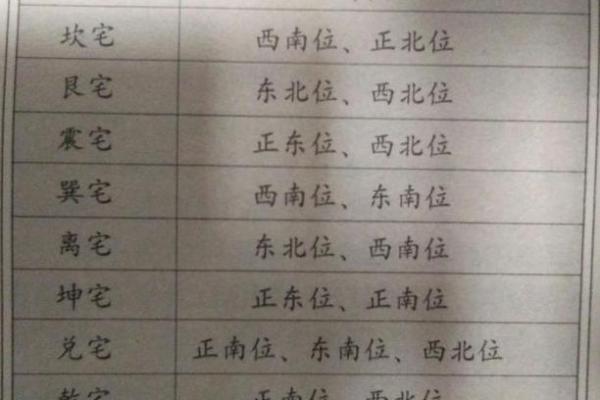 坎宅 西南位、正北位
艮宅 东北位、西北位
震宅 正东位、西北位
巽宅 西南位、东南位
离宅 东北位、西南位
坤宅 正东位、正南位
兑宅 正南位、东南位、西北位
乾宅 正南位、西北位